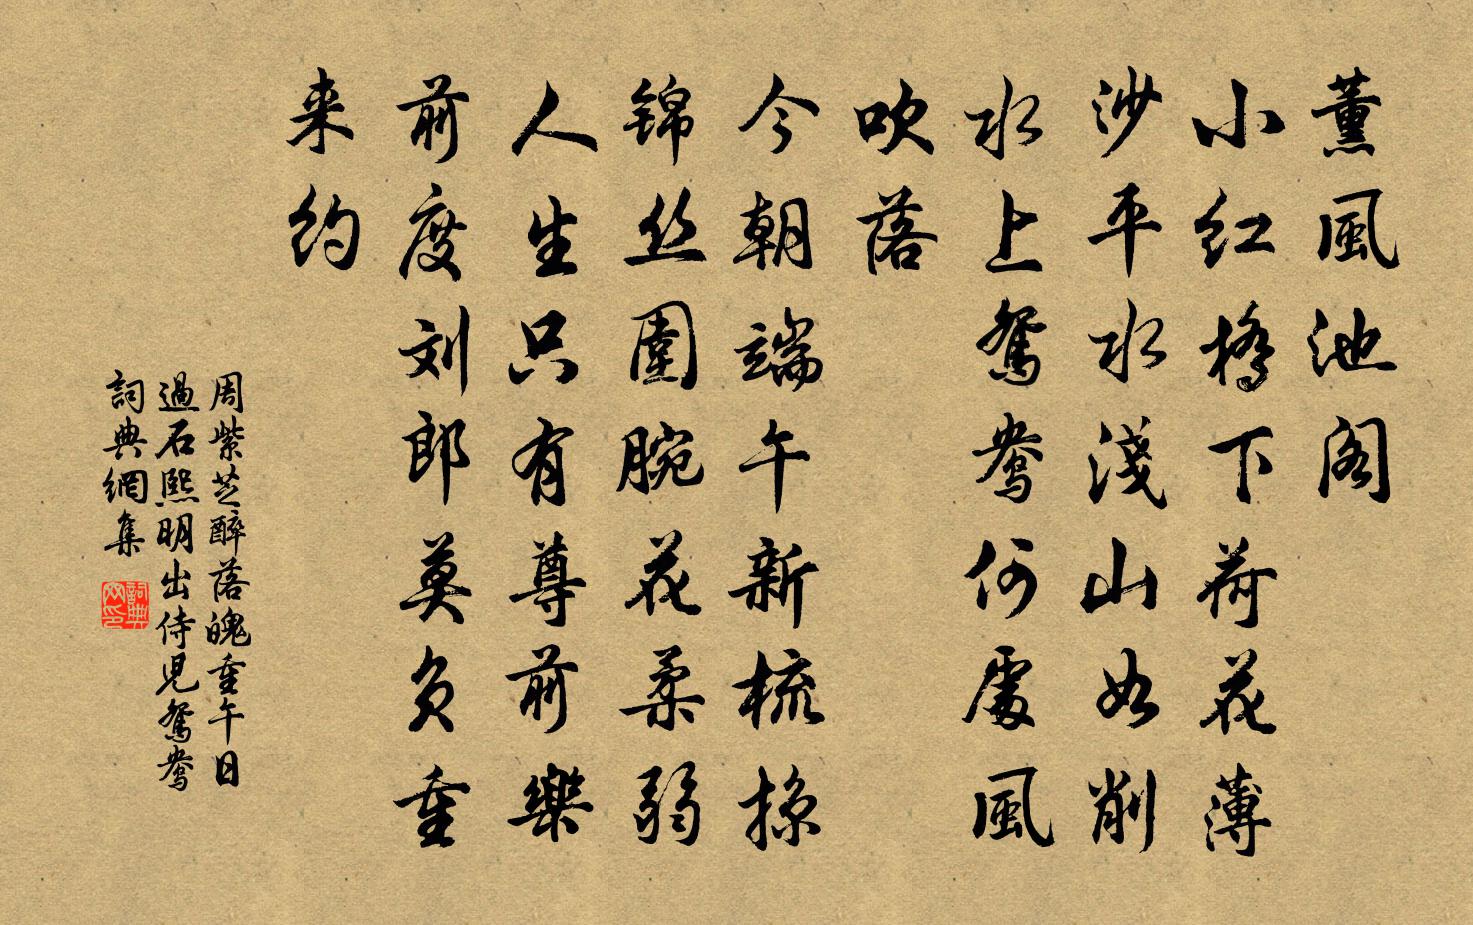 薰風池阁
小红橋下荷花薄
沙平水淺山如削
水上鴛鴦何處風
吹落
今朝端午新梳掠
锦丝圍腕花柔弱
人生只有尊前樂
前度刘郎莫负重
来约
周紫芝醉落魄重午日
過石熙明出侍児鴛鴦
詞典網集
詞典
网印